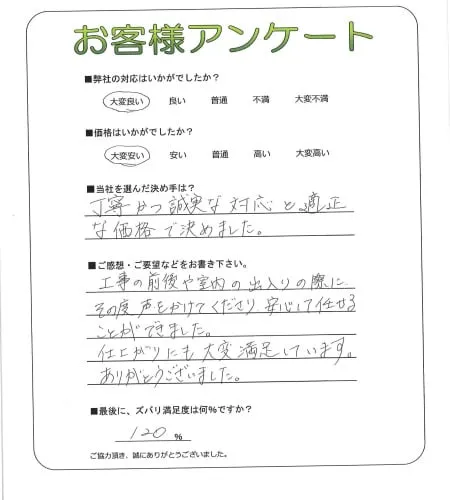 お客様アンケート
■弊社の対応はいかがでしたか？
大変良い 良い 普通 不満 大変不満
■価格はいかがでしたか？
大変安い 安い 普通 高い 大変高い
■当社を選んだ決め手は？
丁寧かつ誠実な対応と適正
な価格で決めました。
■ご感想・ご要望などをお書き下さい。
工事の前後や室内の出入りの際に
その度声をかけてくださり安心して任せる
ことができました。
仕上がりにも大変満足しています。
ありがとうございました。
■最後に、ズバリ満足度は何%ですか？
120 %
ご協力頂き、誠にありがとうございました。